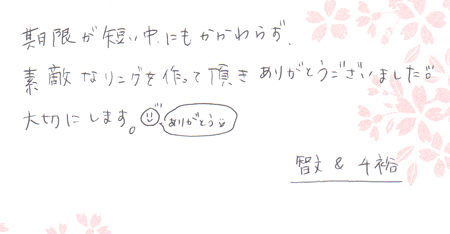 期限が短い中にもかかわらず、
素敵なリングを作って頂きありがとうございました
大切にします。 ありがとう
智丈 & 千裕